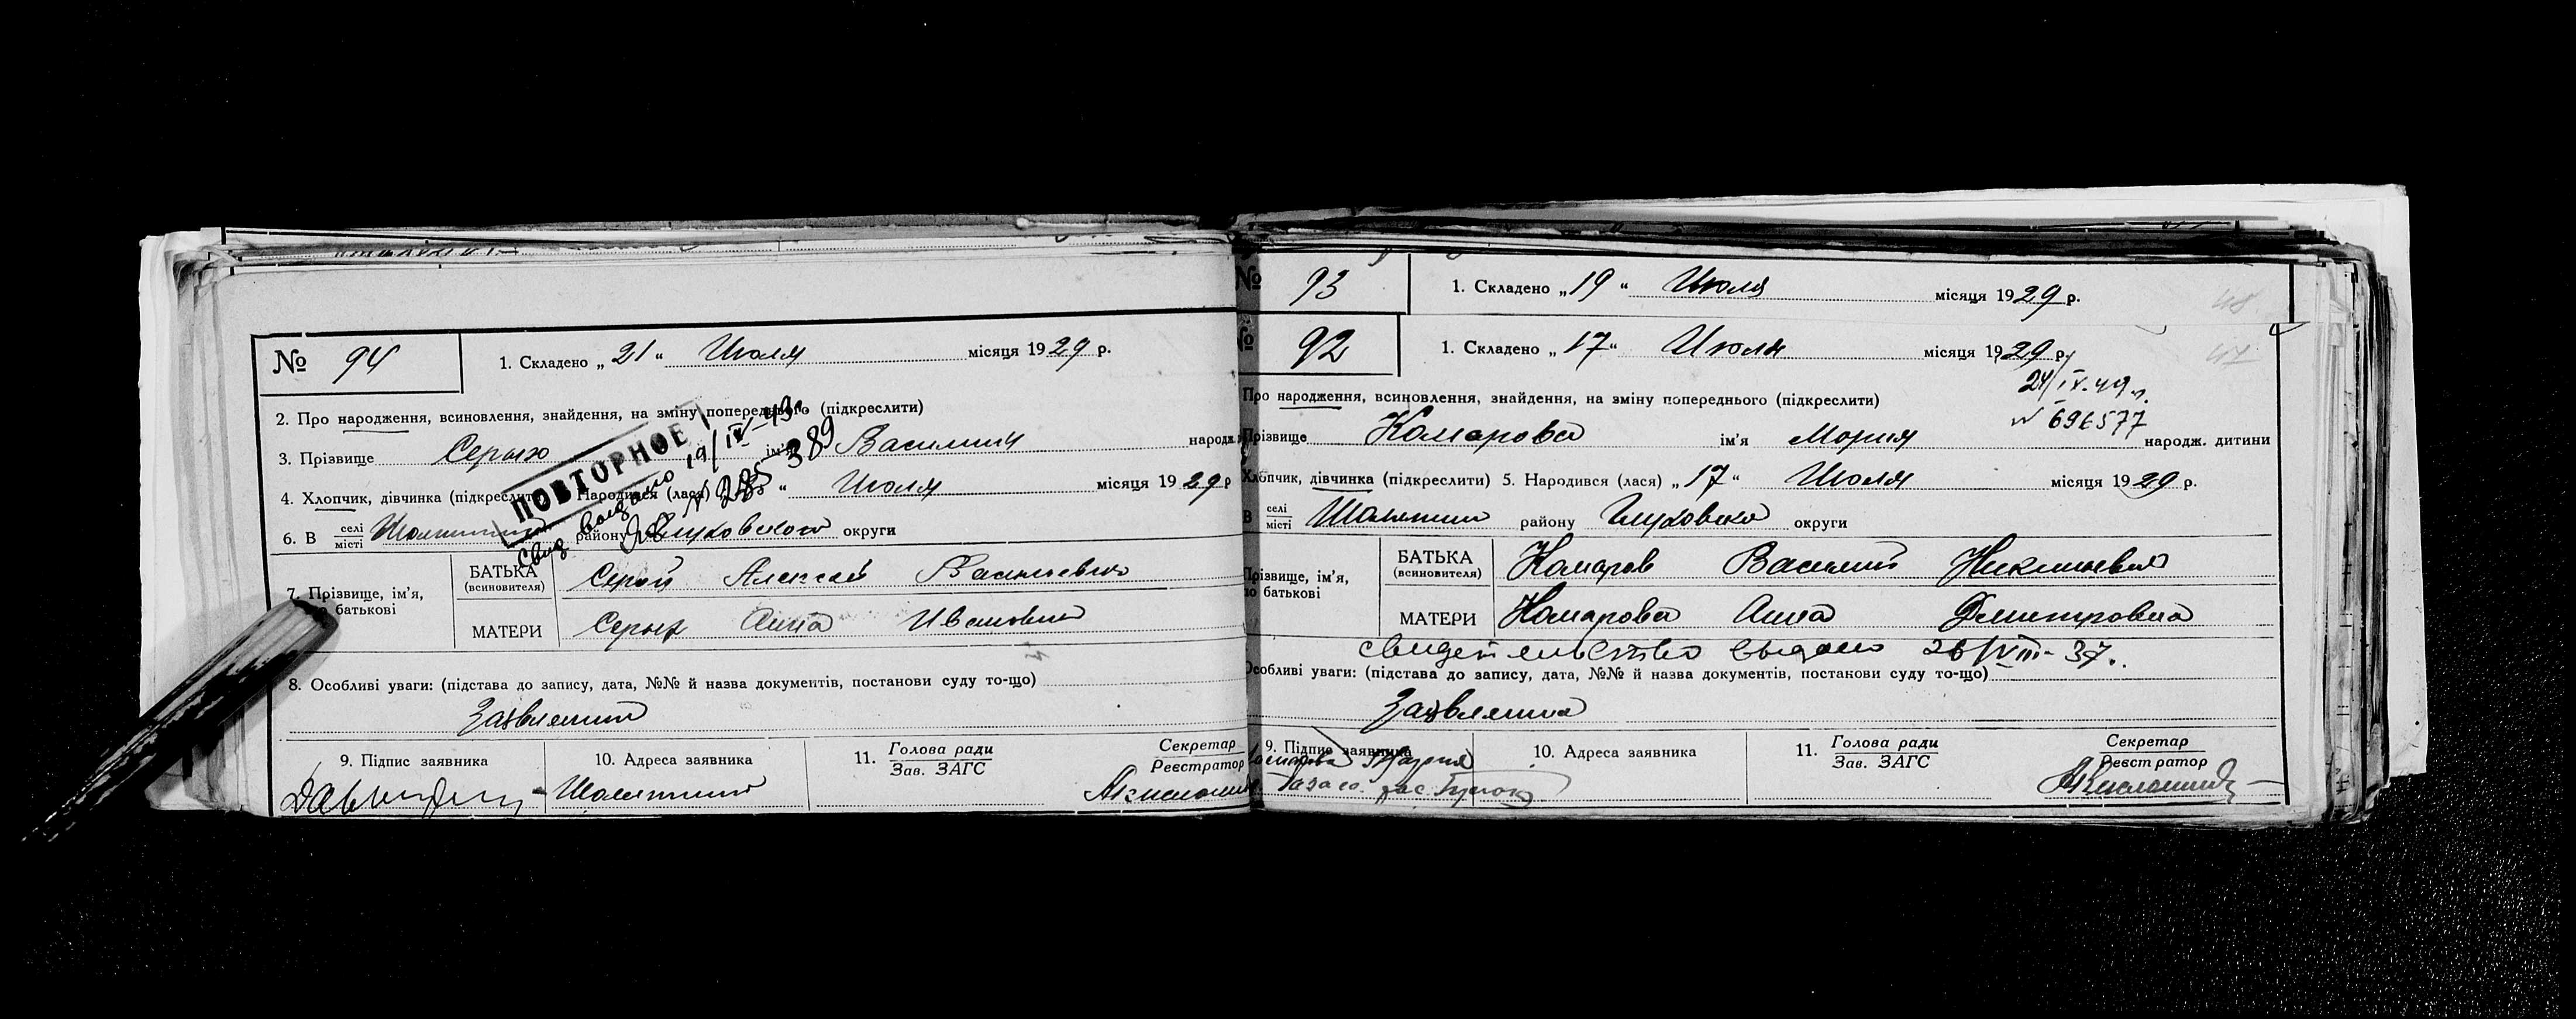 № 94 1. Складено „21“ Июля місяця 1929 р.
2. Про народження, всиновлення, знайдення, на зміну попереднього (підкреслити)
3. Прізвище Серых ім'я Василий народж.
4. Хлопчик, дівчинка (підкреслити) Народився (лася) “ Июля місяця 1929 р
ПОВТОРНОЕ
Свид. выдано 19/IV-49г
389
6. В селі місті Шалыгино району Глуховского округи
7. Прізвище, ім'я, по батькові
БАТЬКА (всиновителя) Серый Алексей Васильевич
МАТЕРИ Серых Анна Ивановна
8. Особливі уваги: (підстава до запису, дата, №№ й назва документів, постанови суду то-що)
Заявление
9. Підпис заявника 10. Адреса заявника 11. Голова ради Зав. ЗАГС Секретар Реєстратор
Шалыгино
№ 93 1. Складено „19“ Июля місяця 1929 р.
№ 92 1. Складено „17“ Июля місяця 1929 р.
24/IX-49г.
Про народження, всиновлення, знайдення, на зміну попереднього (підкреслити)
Прізвище Комарова ім'я Мария народж. дитини
Хлопчик, дівчинка (підкреслити) 5. Народився (лася) „17“ Июля місяця 1929 р.
В селі місті Шалыгино району Глуховско округи
Прізвище, ім'я, по батькові
БАТЬКА (всиновителя) Комаров Василий
МАТЕРИ Комарова Анна Дмитровна
свидетельство выдано 26/VIII-37.
Особливі уваги: (підстава до запису, дата, №№ й назва документів, постанови суду то-що)
Заявление
9. Підпис заявника 10. Адреса заявника 11. Голова ради Зав. ЗАГС Секретар Реєстратор